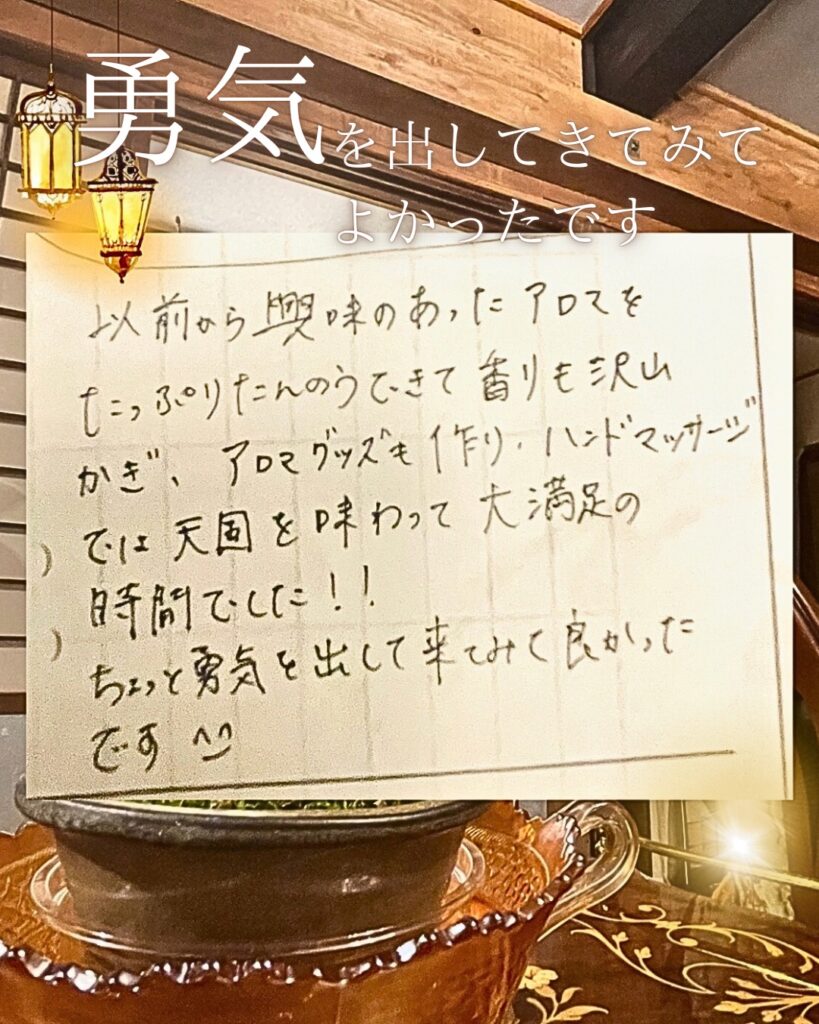 勇気を出してきてみて
よかったです
以前から興味のあったアロマを
たっぷりたんのうできて香りも沢山
かぎ、アロマグッズも作り、ハンドマッサージ
では天国を味わって大満足の
時間でした！！
ちょっと勇気を出して来てみて良かった
です ^^